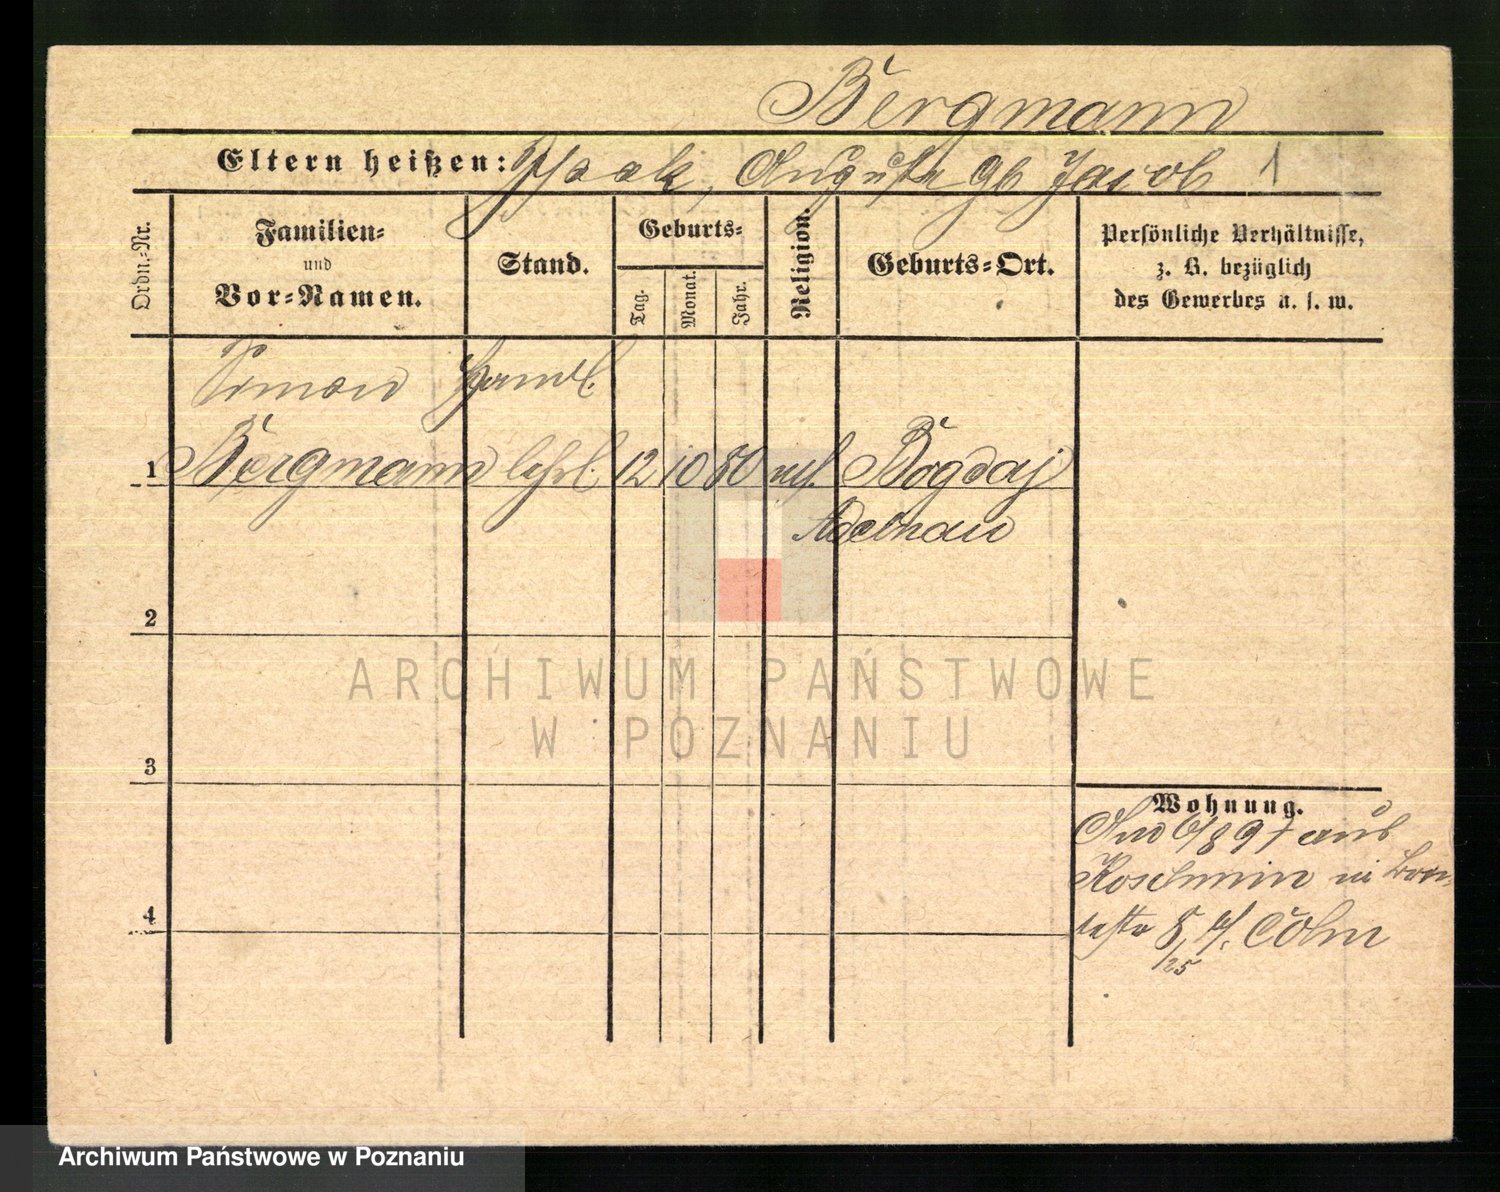 Bergmann
Eltern heißen: Isaak, Auguste gb Jacob 1
Ordn.-Nr.
Familien-
und
Vor-Namen.
Stand.
Geburts-
Tag.
Monat.
Jahr.
Religion.
Geburts-Ort.
Persönliche Verhältnisse,
z. B. bezüglich
des Gewerbes u. s. w.
Simon Handl.
1 Bergmann lehrl. 12 10 80 mos. Bogdaj
Adelnau
2
3
4
Wohnung.
6/8 97 aus
Koschmin in
8, Cohn
/25
ARCHIWUM PAŃSTWOWE
W POZNANIU
Archiwum Państwowe w Poznaniu